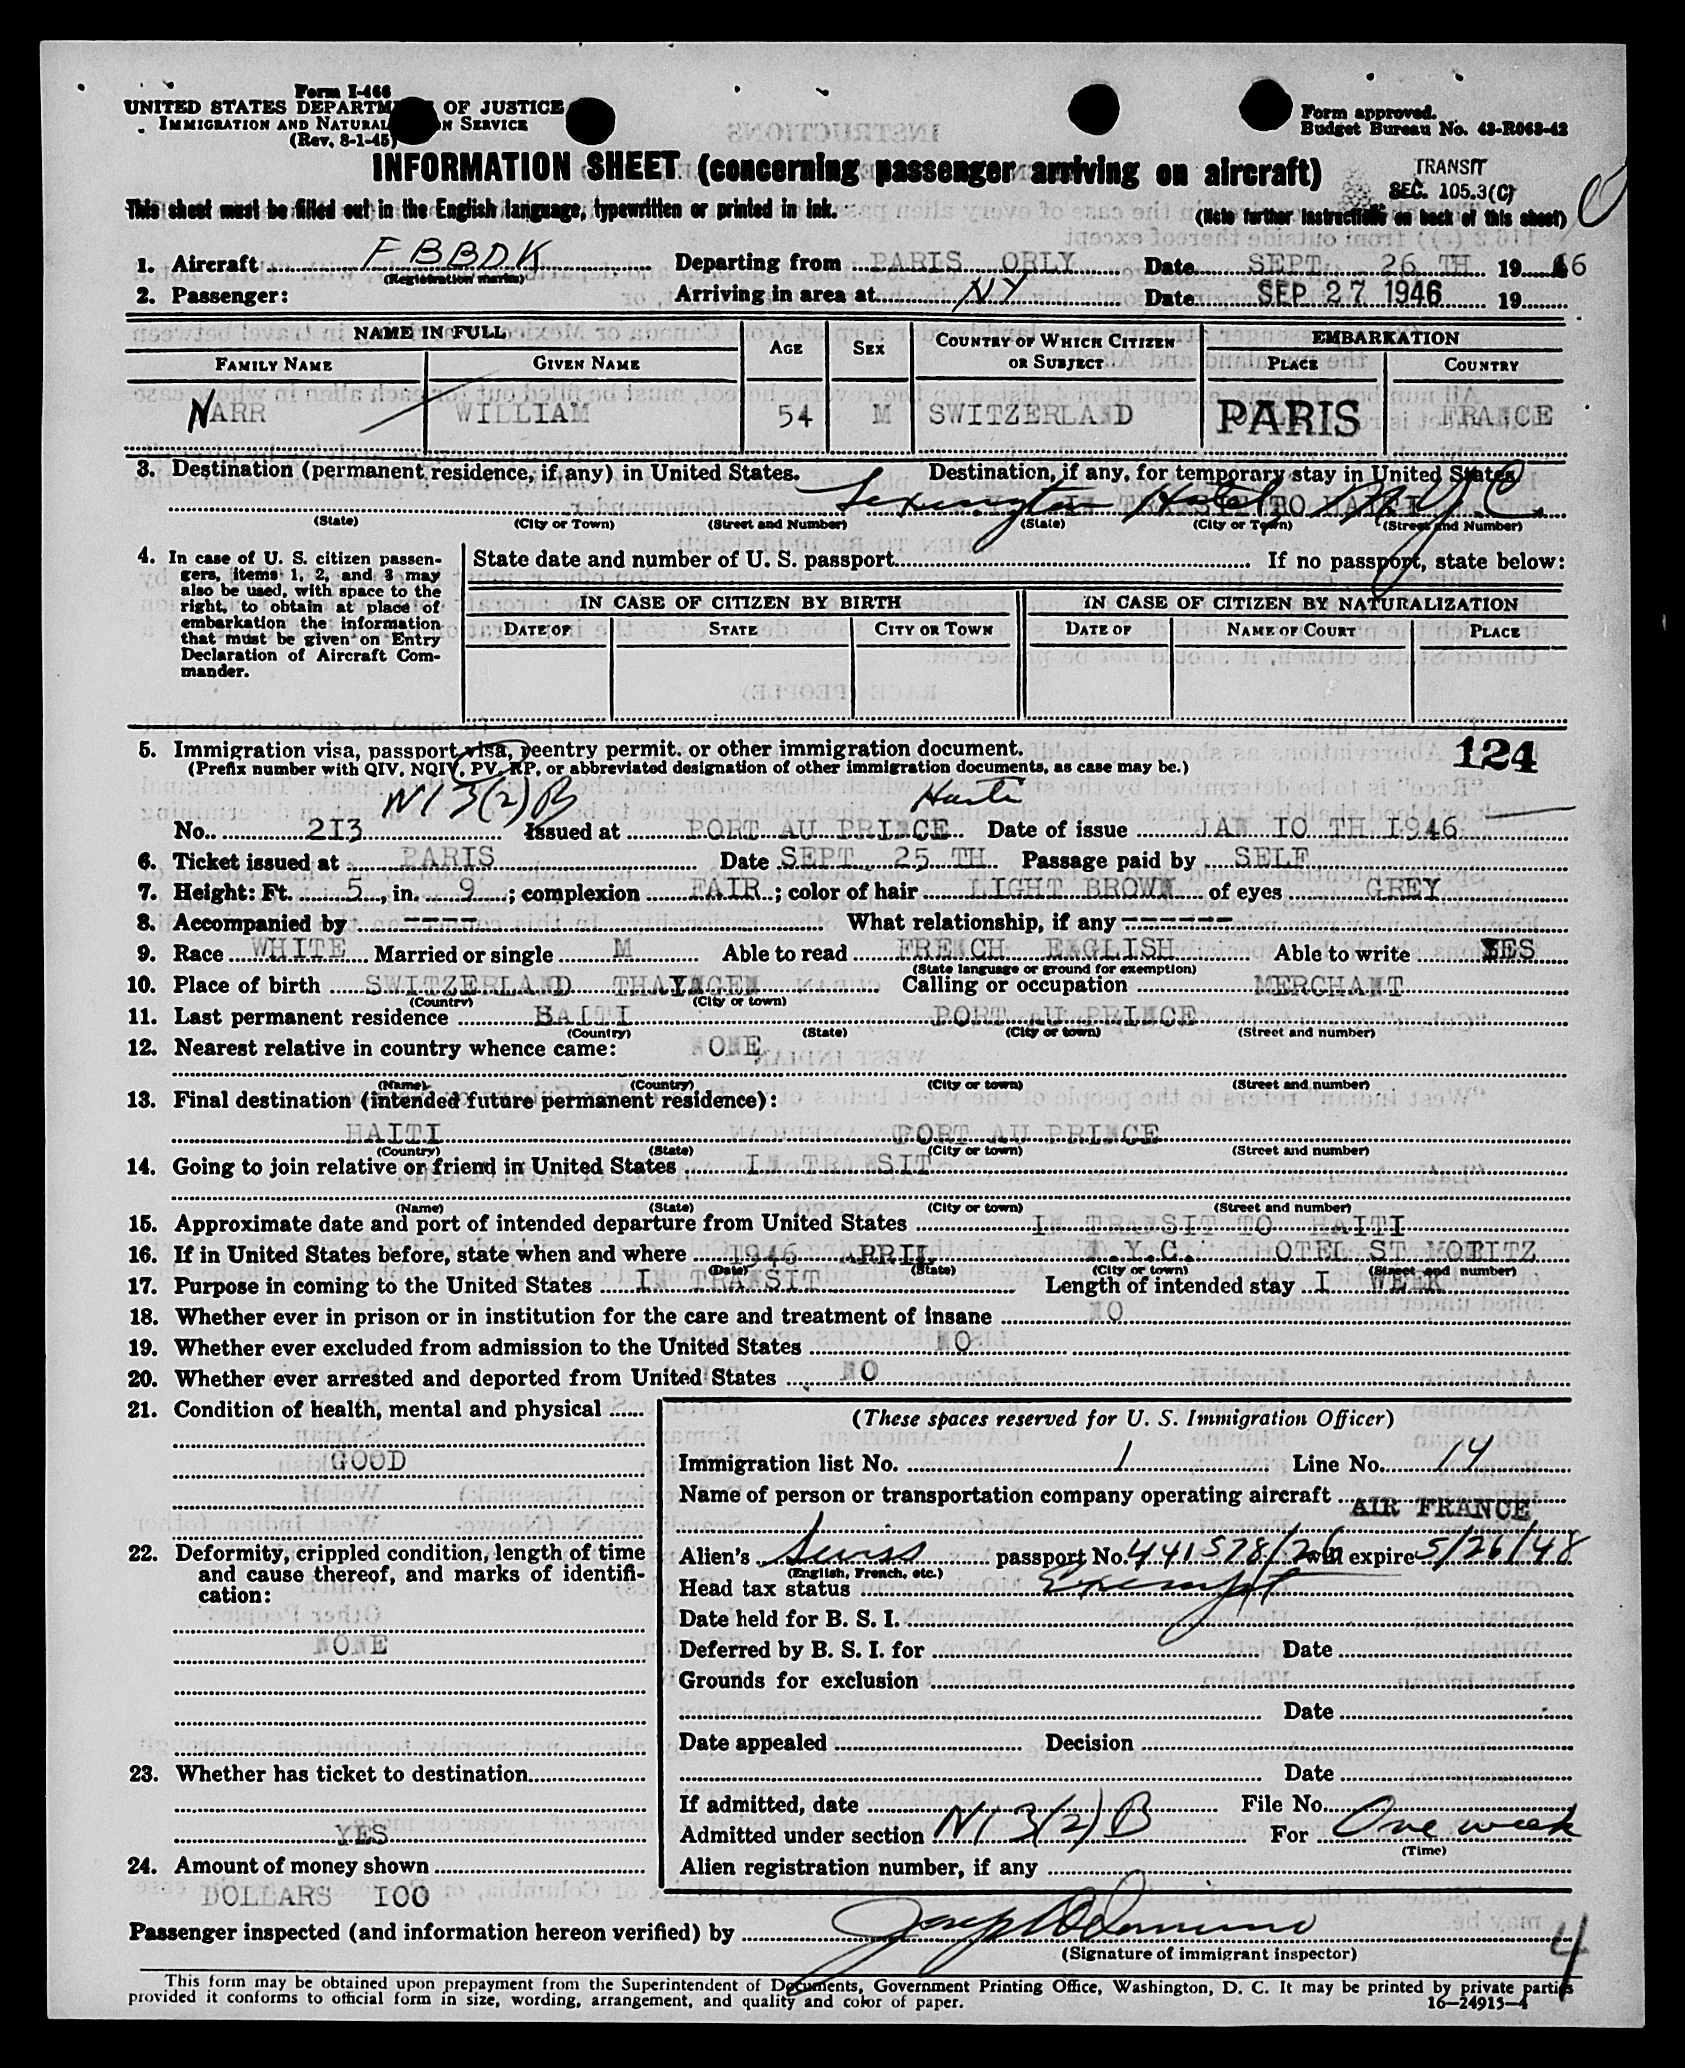 Form I-466
UNITED STATES DEPARTM OF JUSTICE
IMMIGRATION AND NATURAL N SERVICE
(Rev. 8-1-45)
Form approved.
Budget Bureau No. 43-R063-42
INFORMATION SHEET (concerning passenger arriving on aircraft)
TRANSIT
SEC. 105.3(C)
This sheet must be filled out in the English language, typewritten or printed in ink.
(Note further instructions on back of this sheet)
1. Aircraft F BBDK Departing from PARIS ORLY Date SEPT 26 TH 1946
(Registration marks)
2. Passenger: Arriving in area at NY Date SEP 27 1946 19
NAME IN FULL AGE SEX COUNTRY OF WHICH CITIZEN OR SUBJECT EMBARKATION
FAMILY NAME GIVEN NAME PLACE COUNTRY
NARR WILLIAM 54 M SWITZERLAND PARIS FRANCE
3. Destination (permanent residence, if any) in United States. Destination, if any, for temporary stay in United States
Lexington Hotel N.Y.C.
IN TRANSIT TO HAITI
(State) (City or Town) (Street and Number) (State) (City or Town) (Street and Number)
4. In case of U. S. citizen passengers, items 1, 2, and 3 may
also be used, with space to the
right, to obtain at place of
embarkation the information
that must be given on Entry
Declaration of Aircraft Commander.
State date and number of U. S. passport If no passport, state below:
IN CASE OF CITIZEN BY BIRTH IN CASE OF CITIZEN BY NATURALIZATION
DATE OF STATE CITY OR TOWN DATE OF NAME OF COURT PLACE
5. Immigration visa, passport visa, reentry permit. or other immigration document. 124
(Prefix number with QIV, NQIV, PV, RP, or abbreviated designation of other immigration documents, as case may be.)
NI 3(2)B Haiti
No. 2I3 Issued at PORT AU PRINCE Date of issue JAN IO TH I946
6. Ticket issued at PARIS Date SEPT 25 TH Passage paid by SELF
7. Height: Ft. 5, in. 9; complexion FAIR; color of hair LIGHT BROWN of eyes GREY
8. Accompanied by ----- What relationship, if any ------
9. Race WHITE Married or single M Able to read FRENCH ENGLISH Able to write YES
(State language or ground for exemption)
10. Place of birth SWITZERLAND THAYNGEN Calling or occupation MERCHANT
(Country) (City or town)
11. Last permanent residence HAITI PORT AU PRINCE
(Country) (State) (City or town) (Street and number)
12. Nearest relative in country whence came: NONE
(Name) (Country) (City or town) (Street and number)
13. Final destination (intended future permanent residence):
HAITI PORT AU PRINCE
(Country) (State) (City or town) (Street and number)
14. Going to join relative or friend in United States IN TRANSIT
(Name) (State) (City or town) (Street and number)
15. Approximate date and port of intended departure from United States IN TRANSIT TO HAITI
16. If in United States before, state when and where 1946 APRIL N.Y.C. OTEL ST MORITZ
(Date) (State) (City or town) (Street and number)
17. Purpose in coming to the United States IN TRANSIT Length of intended stay I WEEK
18. Whether ever in prison or in institution for the care and treatment of insane NO
19. Whether ever excluded from admission to the United States NO
20. Whether ever arrested and deported from United States NO
21. Condition of health, mental and physical
GOOD
22. Deformity, crippled condition, length of time
and cause thereof, and marks of identification:
NONE
23. Whether has ticket to destination
YES
24. Amount of money shown
DOLLARS I00
(These spaces reserved for U. S. Immigration Officer)
Immigration list No. 1 Line No. 14
Name of person or transportation company operating aircraft AIR FRANCE
Alien's Swiss passport No. 441578/26 will expire 5/26/48
(English, French, etc.)
Head tax status Exempt
Date held for B. S. I.
Deferred by B. S. I. for Date
Grounds for exclusion
Date
Date appealed Decision
Date
If admitted, date File No.
Admitted under section NI 3(2)B For One week
(Time)
Alien registration number, if any
Passenger inspected (and information hereon verified) by
(Signature of immigrant inspector)
4
This form may be obtained upon prepayment from the Superintendent of Documents, Government Printing Office, Washington, D. C. It may be printed by private parties
provided it conforms to official form in size, wording, arrangement, and quality and color of paper.
16—24915-4